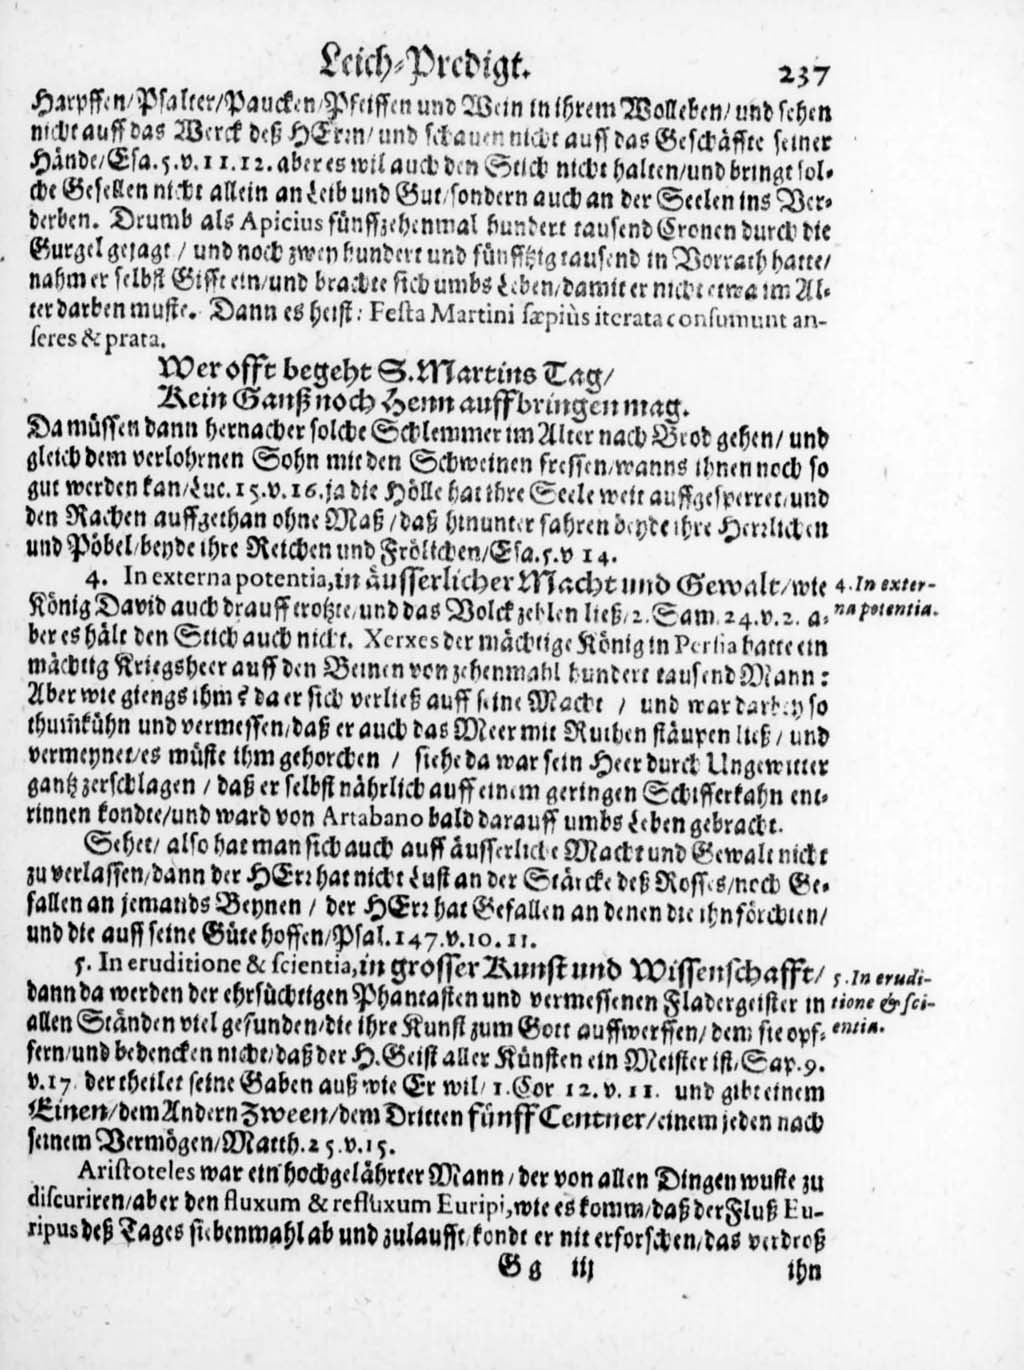 Leich-Predigt. 237
Harpffen/Psalter/Paucken/Pfeiffen und Wein in ihrem Wolleben/ und sehen
nicht auff das Werck deß HErrn/ und schauen nicht auff das Geschäffte seiner
Hände/Esa.5.v.11.12. aber es wil auch den Stich nicht halten/und bringt sol-
che Gesellen nicht allein an Leib und Gut/sondern auch an der Seelen ins Ver-
derben. Drumb als Apicius fünffzehenmal hundert tausend Cronen durch die
Gurgel gejagt / und noch zwey hundert und fünfftzig tausend in Vorrath hatte/
nahm er selbst Gifft ein/und brachte sich umbs Leben/damit er nicht etwa im Al-
ter darben muste. Dann es heist: Festa Martini sæpiùs iterata consumunt an-
seres & prata.
Wer offt begeht S.Martins Tag/
Kein Ganß noch Henn auffbringen mag.
Da müssen dann hernacher solche Schlemmer im Alter nach Brod gehen/ und
gleich dem verlohrnen Sohn mit den Schweinen fressen/wanns ihnen noch so
gut werden kan/Luc.15.v.16.ja die Hölle hat ihre Seele weit auffgesperret/und
den Rachen auffgethan ohne Maß/daß hinunter fahren beyde ihre Herrlichen
und Pöbel/beyde ihre Reichen und Frölichen/Esa.5.v 14.
4. In externa potentia,in äusserlicher Macht und Gewalt/wie
König David auch drauff trotzte/und das Volck zehlen ließ/2.Sam.24.v.2. a-
ber es hält den Stich auch nicht. Xerxes der mächtige König in Persia hatte ein
mächtig Kriegsheer auff den Beinen von zehenmahl hundert tausend Mann:
Aber wie giengs ihm? da er sich verließ auff seine Macht / und war darbey so
thumkühn und vermessen/daß er auch das Meer mit Ruthen stäupen ließ/ und
vermeynet/es müste ihm gehorchen / siehe da war sein Heer durch Ungewitter
gantz zerschlagen / daß er selbst nährlich auff einem geringen Schifferkahn ent-
rinnen kondte/und ward von Artabano bald darauff umbs Leben gebracht.
Sehet/ also hat man sich auch auff äusserliche Macht und Gewalt nicht
zu verlassen/dann der HErr hat nicht Lust an der Stärcke deß Rosses/noch Ge-
fallen an jemands Beynen / der HErr hat Gefallen an denen die ihn förchten/
und die auff seine Güte hoffen/Psal.147.v.10.11.
5. In eruditione & scientia,in grosser Kunst und Wissenschafft/
dann da werden der ehrsüchtigen Phantasten und vermessenen Fladergeister in
allen Ständen viel gefunden/die ihre Kunst zum Gott auffwerffen/ dem sie opf-
fern/und bedencken nicht/daß der H.Geist aller Künsten ein Meister ist/Sap.9.
v.17. der theilet seine Gaben auß wie Er wil/ 1.Cor 12.v.11. und gibt einem
Einen/dem Andern Zween/dem Dritten fünff Centner/einem jeden nach
seinem Vermögen/Matth.25.v.15.
Aristoteles war ein hochgelährter Mann/der von allen Dingen wuste zu
discuriren/aber den fluxum & refluxum Euripi,wie es komm/daß der Fluß Eu-
ripus deß Tages siebenmahl ab und zulaufft/kondt er nit erforschen/das verdroß
Gg iij ihn
4.In exter-
na potentia.
5.In erudi-
tione & sci-
entia.